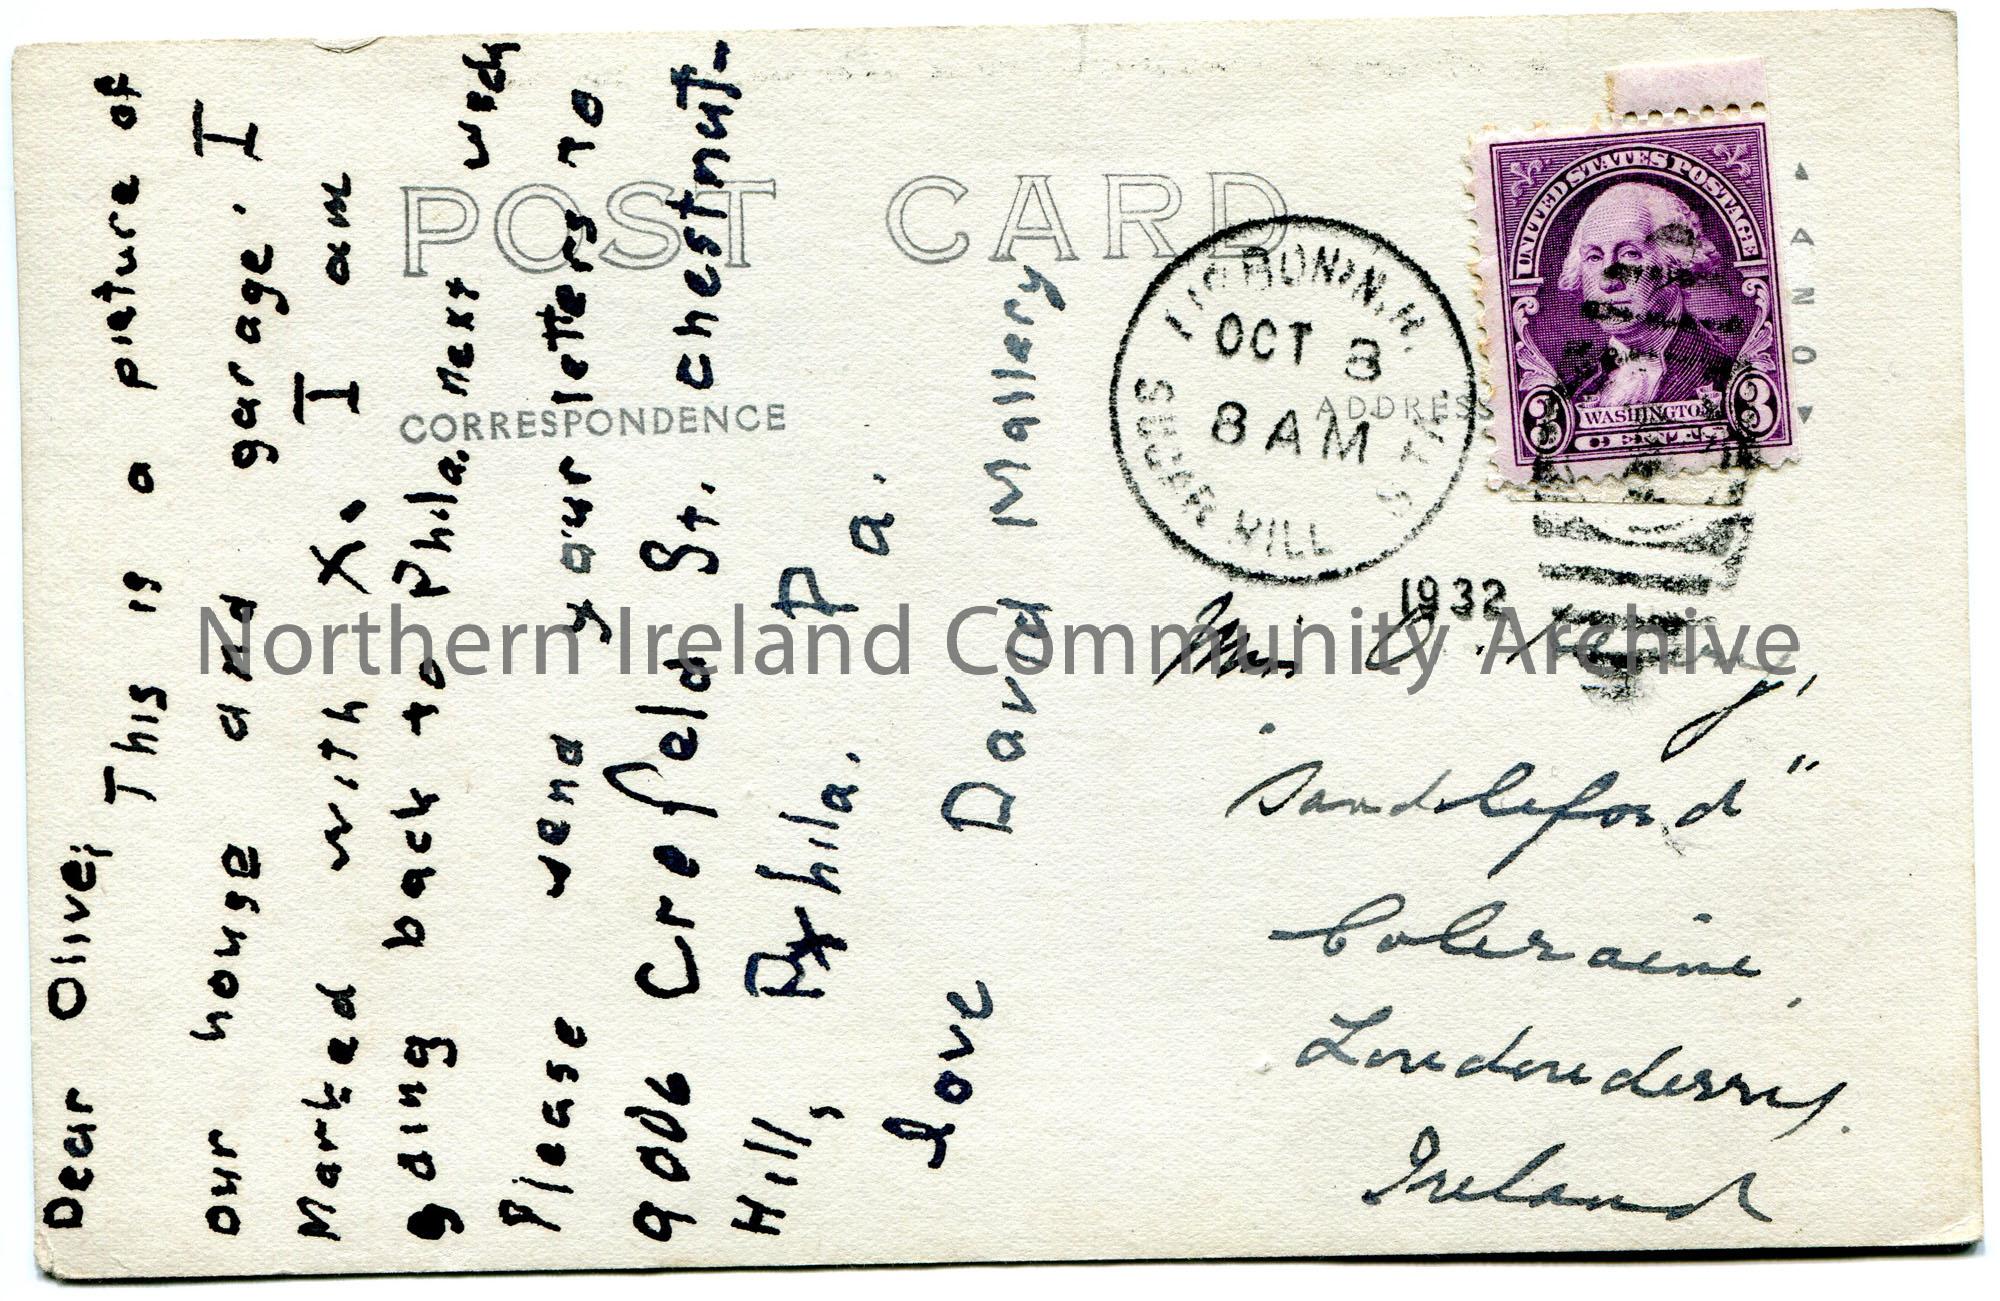 Dear Olive, This is a picture of
our house and garage. I
Marked with X. I am
going back to Phila. Next
Please send your letters to
9006 Crefeld St. Chestnut-
Hill, Phila. Pa.
Love David Mallery
POST CARD
CORRESPONDENCE
ADDRESS
LISBON N.H.
OCT 3
8 AM
SUGAR HILL STA.
1932
UNITED STATES POSTAGE
WASHINGTON
3 CENTS 3
AZO
Miss O.
"Sandleford"
Coleraine,
Londonderry.
Ireland
Northern Ireland Community Archive